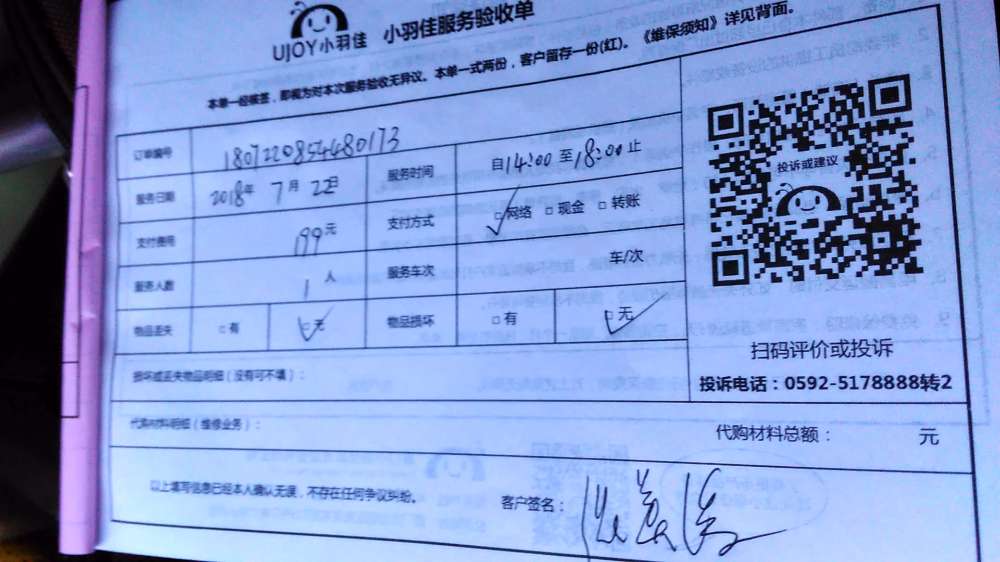 UJOY小羽佳 小羽佳服务验收单
本单一经核签，即视为对本次服务验收无异议。本单一式两份，客户留存一份(红)。《维保须知》详见背面。
订单编号 1807220854480173
服务日期 2018年 7月 22日 服务时间 自14:00 至18:00 止
支付费用 199元 支付方式 □网络 □现金 □转账
服务人数 1 人 服务车次 车/次
物品丢失 □有 □无 物品损坏 □有 □无
投诉或建议
扫码评价或投诉
投诉电话：0592-5178888转2
损坏或丢失物品明细（没有可不填）：
代购材料明细（维修业务）： 代购材料总额： 元
以上填写信息已经本人确认无误，不存在任何争议纠纷。 客户签名：